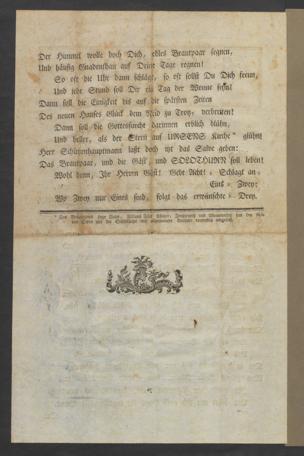 Der Himmel wolle doch Dich, edles Brautpaar segnen,
Und häufig Gnadenthau auf Deine Tage regnen!
So oft die Uhr dann schlägt, so oft sollst Du Dich freun,
Und jede Stund soll Dir ein Tag der Wonne seyn!
Dann soll die Einigkeit bis auf die spätsten Zeiten
Des neuen Hauses Glück dem Neid zu Trotz, verbreiten!
Dann soll die Gottesfurcht darinnen erblich blühn,
Und heller, als der Stern auf URSENS Kirche * glühn!
Herr Schützenhauptmann laßt doch itzt das Salve geben:
Das Brautpaar, und die Gäst, und SOLOTHURN soll leben!
Wohl denn, Ihr Herren Gäst! Gebt Acht! = Schlagt an,
Eins = Zwey:
Wo Zwey nur Eines sind, folgt das erwünschte = Drey.